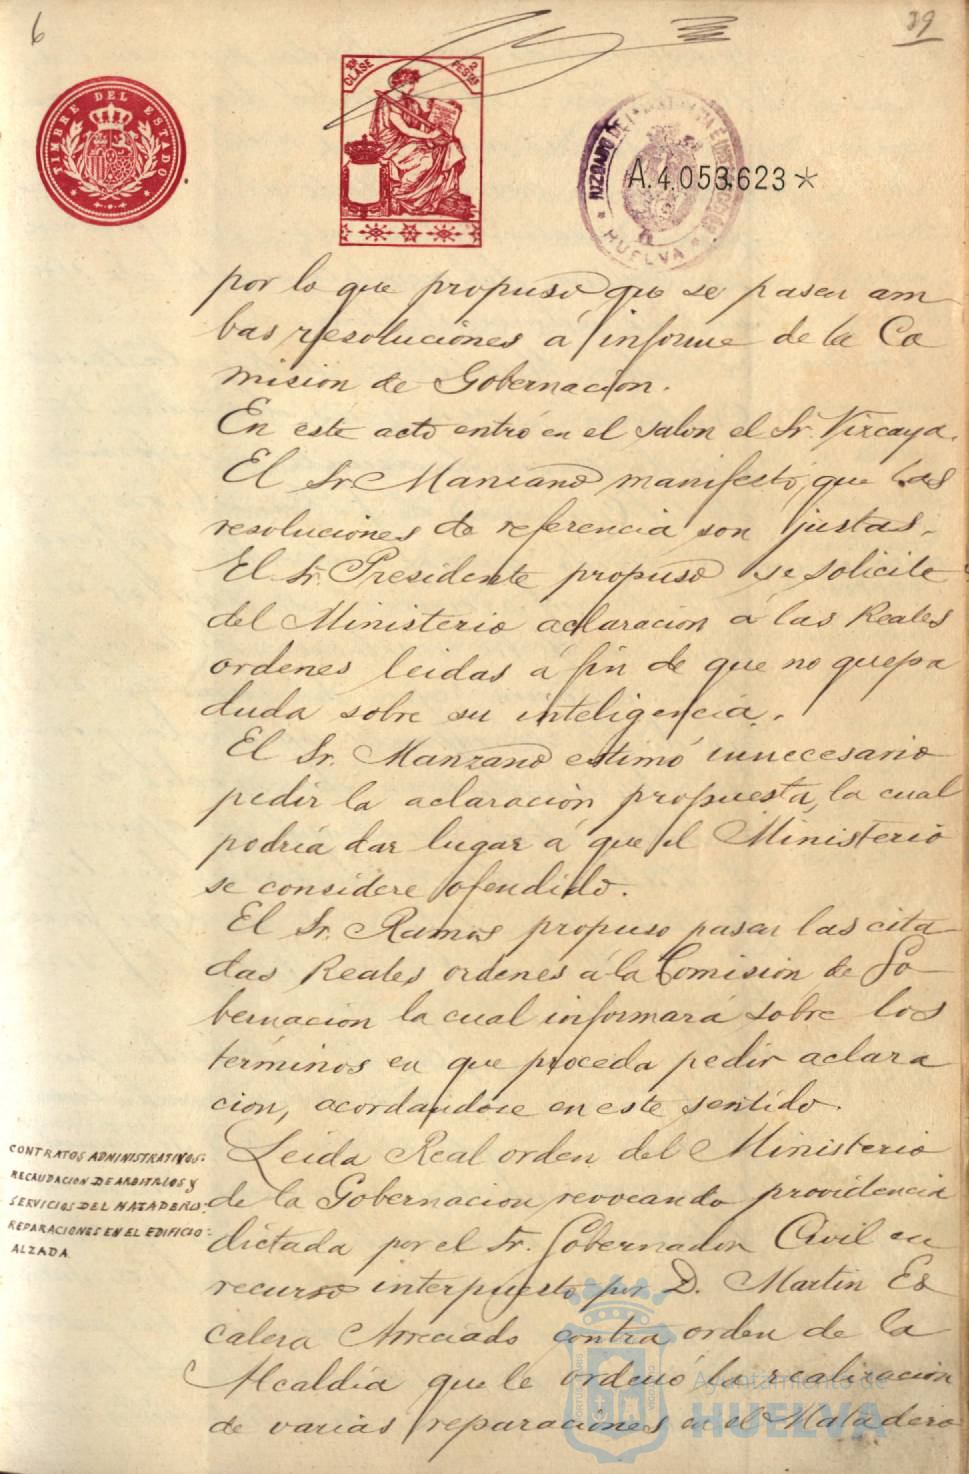 6
39
TIMBRE DEL ESTADO
10ª CLASE
2 PESETAS
HUELVA
A.4.053.623*
por lo que propuso que se pasen am
bas resoluciones á informe de la Co
misión de Gobernación.
En este acto entró en el salon el Sr. Vizcaya.
El Sr. Manzano manifestó, que las
resoluciones de referencia son justas.
El Sr. Presidente propuso se solicite
del Ministerio aclaración á las Reales
ordenes leidas á fin de que no quepa
duda sobre su inteligencia.
El Sr. Manzano estimó innecesario
pedir la aclaración propuesta, la cual
podría dar lugar á que el Ministerio
se considere ofendido.
El Sr. Ramos propuso pasar las cita
das Reales ordenes á la Comisión de Go-
bernación la cual informará sobre los
términos en que proceda pedir aclara
cion, acordandose en este sentido.
CONTRATOS ADMINISTRATIVOS.
RECAUDACION DE ARBITRIOS Y
SERVICIOS DEL MATADERO.
REPARACIONES EN EL EDIFICIO.
ALZADA
Leida Real orden del Ministerio
de la Gobernacion revocando providencia
dictada por el Sr. Gobernador Civil en
recurso interpuesto por D. Martin Es
calera Arreciado contra orden de la
Alcaldía que le ordenó la realizacion
de varias reparaciones en el Matadero
Ayuntamiento de
HUELVA